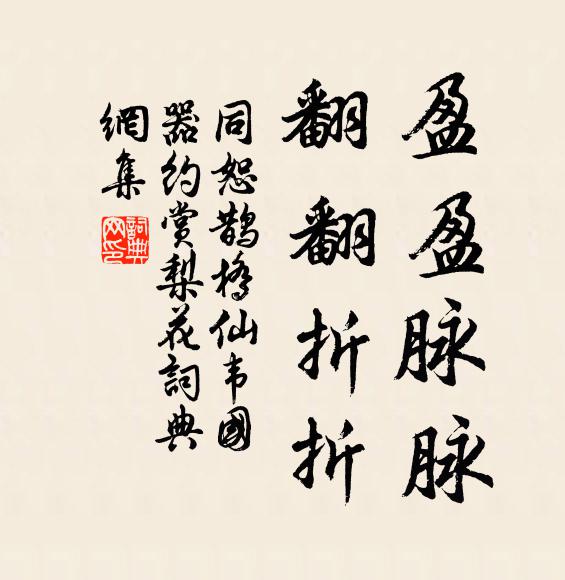 盈盈脉脉
翻翻折折
同恕鹊橋仙韦國
器约赏梨花詞典
網集
詞典
网印